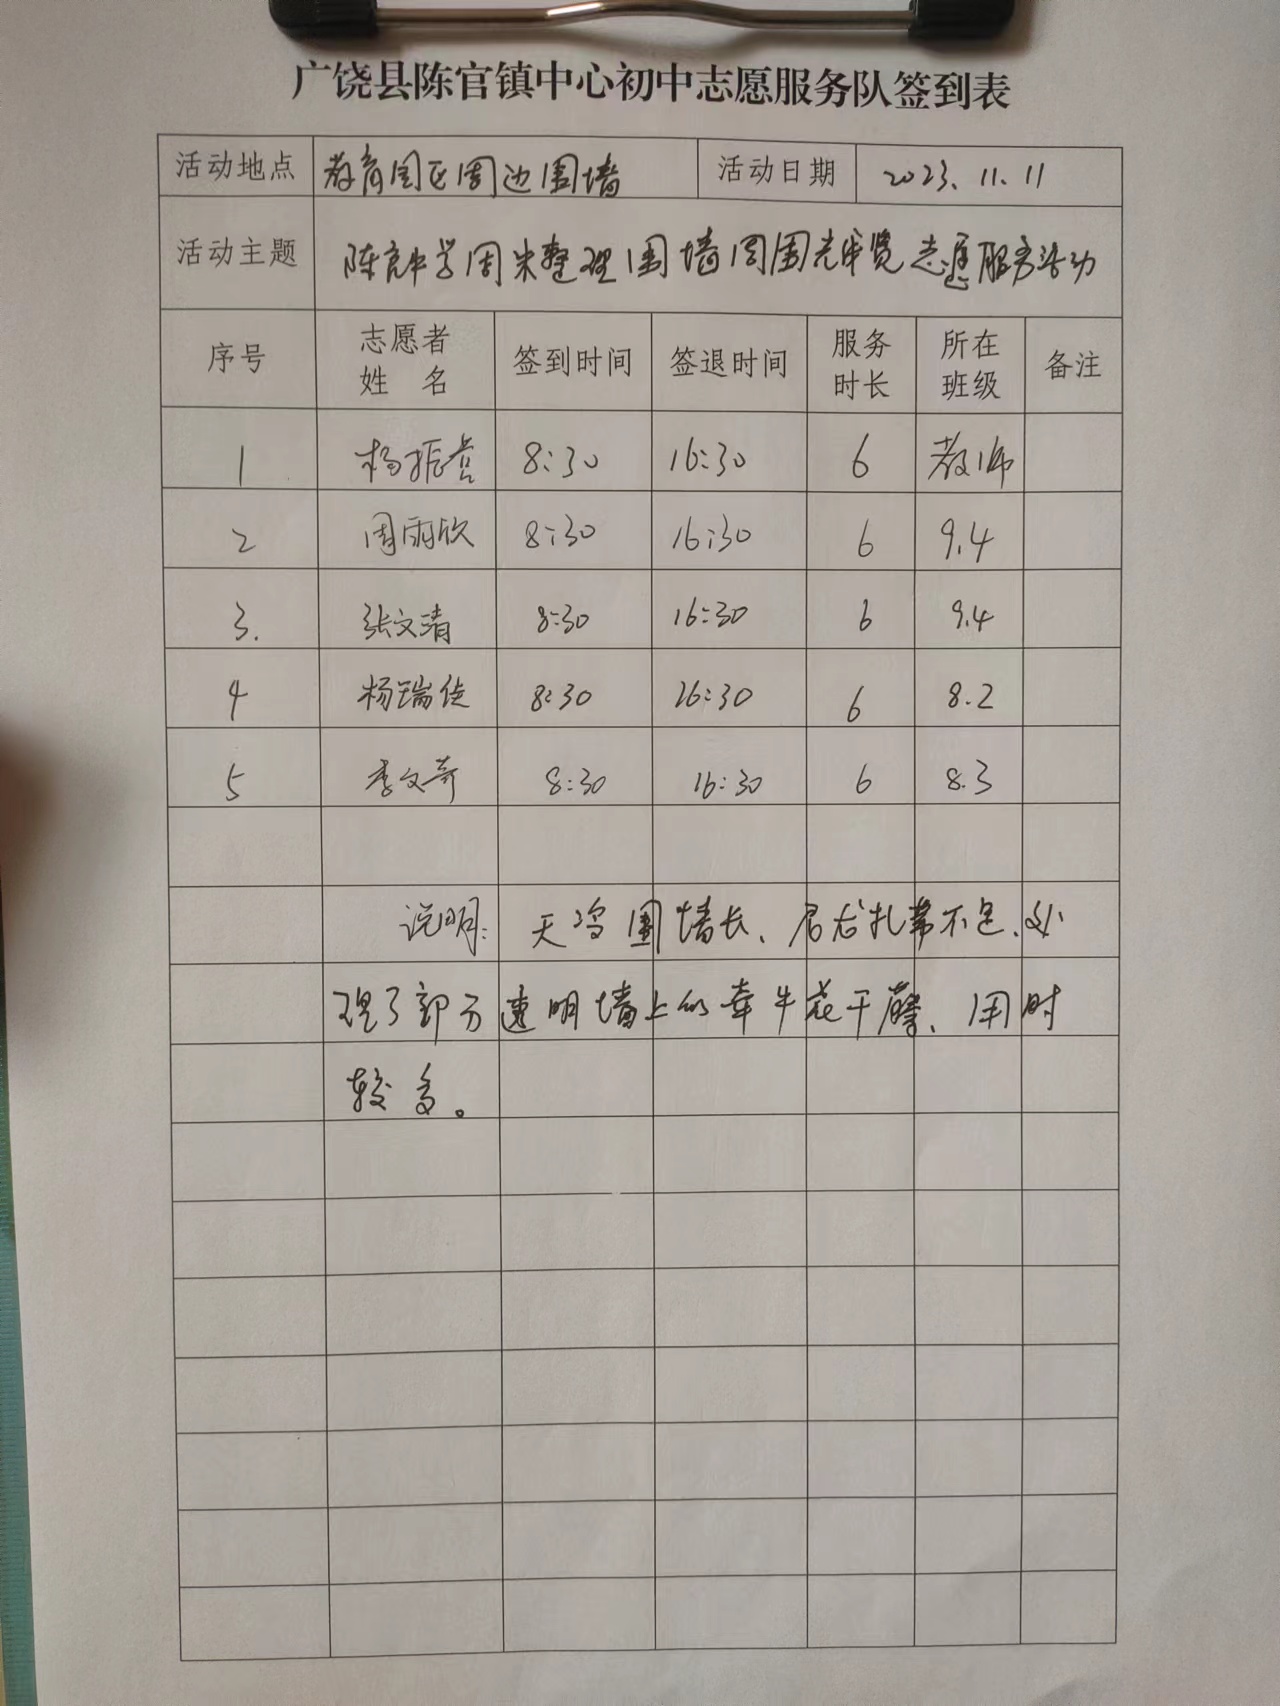 广饶县陈官镇中心初中志愿服务队签到表
活动地点 教育园区周边围墙 活动日期 2023.11.11
活动主题 陈官中学周末整理围墙周围 志愿服务活动
序号 志愿者姓 名 签到时间 签退时间 服务时长 所在班级 备注
1 杨振营 8:30 16:30 6 教师
2 周雨欣 8:30 16:30 6 9.4
3. 张文清 8:30 16:30 6 9.4
4 杨瑞佳 8:30 16:30 6 8.2
5 李文奇 8:30 16:30 6 8.3
说明: 天冷围墙长、 扎带不足、处
理了部分透明墙上的牵牛花干 、用时
较多。